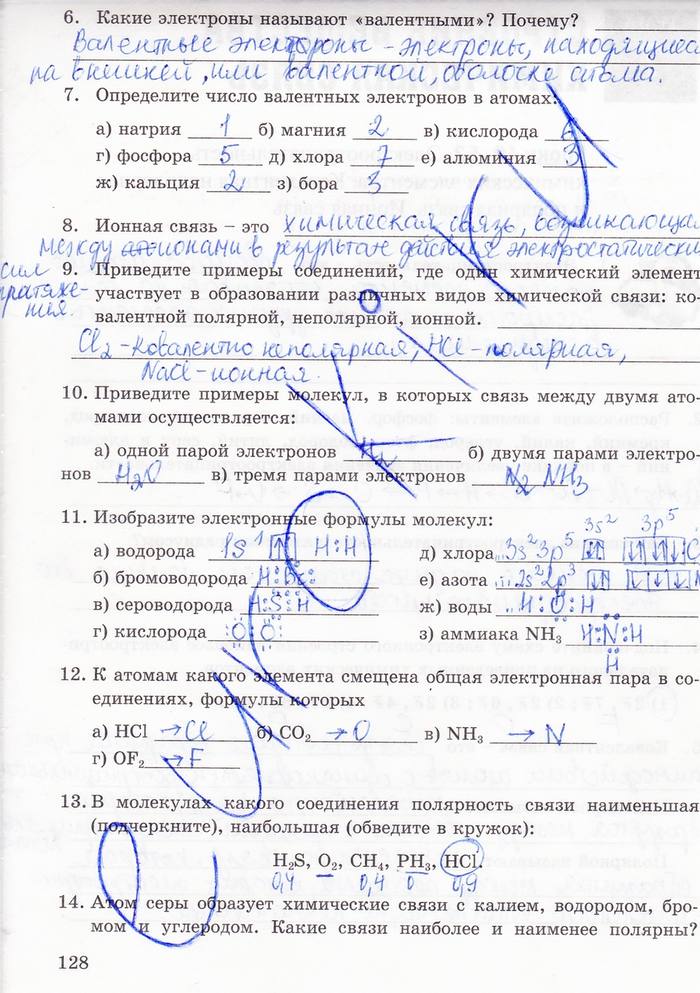 6. Какие электроны называют «валентными»? Почему?
Валентные электороны - электроны, находящиеся
на внешней, или валентной, оболоске атома.
7. Определите число валентных электронов в атомах:
а) натрия 1 б) магния 2 в) кислорода 6
г) фосфора 5 д) хлора 7 е) алюминия 3
ж) кальция 2 з) бора 3
8. Ионная связь – это химическая связь, возникающая
между ионами в результате действия электростатических
сил притяжения.
9. Приведите примеры соединений, где один химический элемент
участвует в образовании различных видов химической связи: ко-
валентной полярной, неполярной, ионной.
Cl₂ - ковалентно неполярная, HCl - полярная,
NaCl - ионная.
10. Приведите примеры молекул, в которых связь между двумя ато-
мами осуществляется:
а) одной парой электронов б) двумя парами электро-
нов H₂O в) тремя парами электронов N₂ NH₃
11. Изобразите электронные формулы молекул:
3s² 3p⁵
а) водорода 1s¹ ↑ H:H д) хлора ...3s²3p⁵
б) бромоводорода H:Br: е) азота ...2s²2p³
в) сероводорода H:S:H ж) воды H:O:H
г) кислорода :O:O: з) аммиака NH₃ H:N:H
H
12. К атомам какого элемента смещена общая электронная пара в со-
единениях, формулы которых
а) HCl → Cl б) CO₂ → O в) NH₃ → N
г) OF₂ → F
13. В молекулах какого соединения полярность связи наименьшая
(подчеркните), наибольшая (обведите в кружок):
H₂S, O₂, CH₄, PH₃, HCl.
0,4 0,4 0 0,9
14. Атом серы образует химические связи с калием, водородом, бро-
мом и углеродом. Какие связи наиболее и наименее полярны?
128